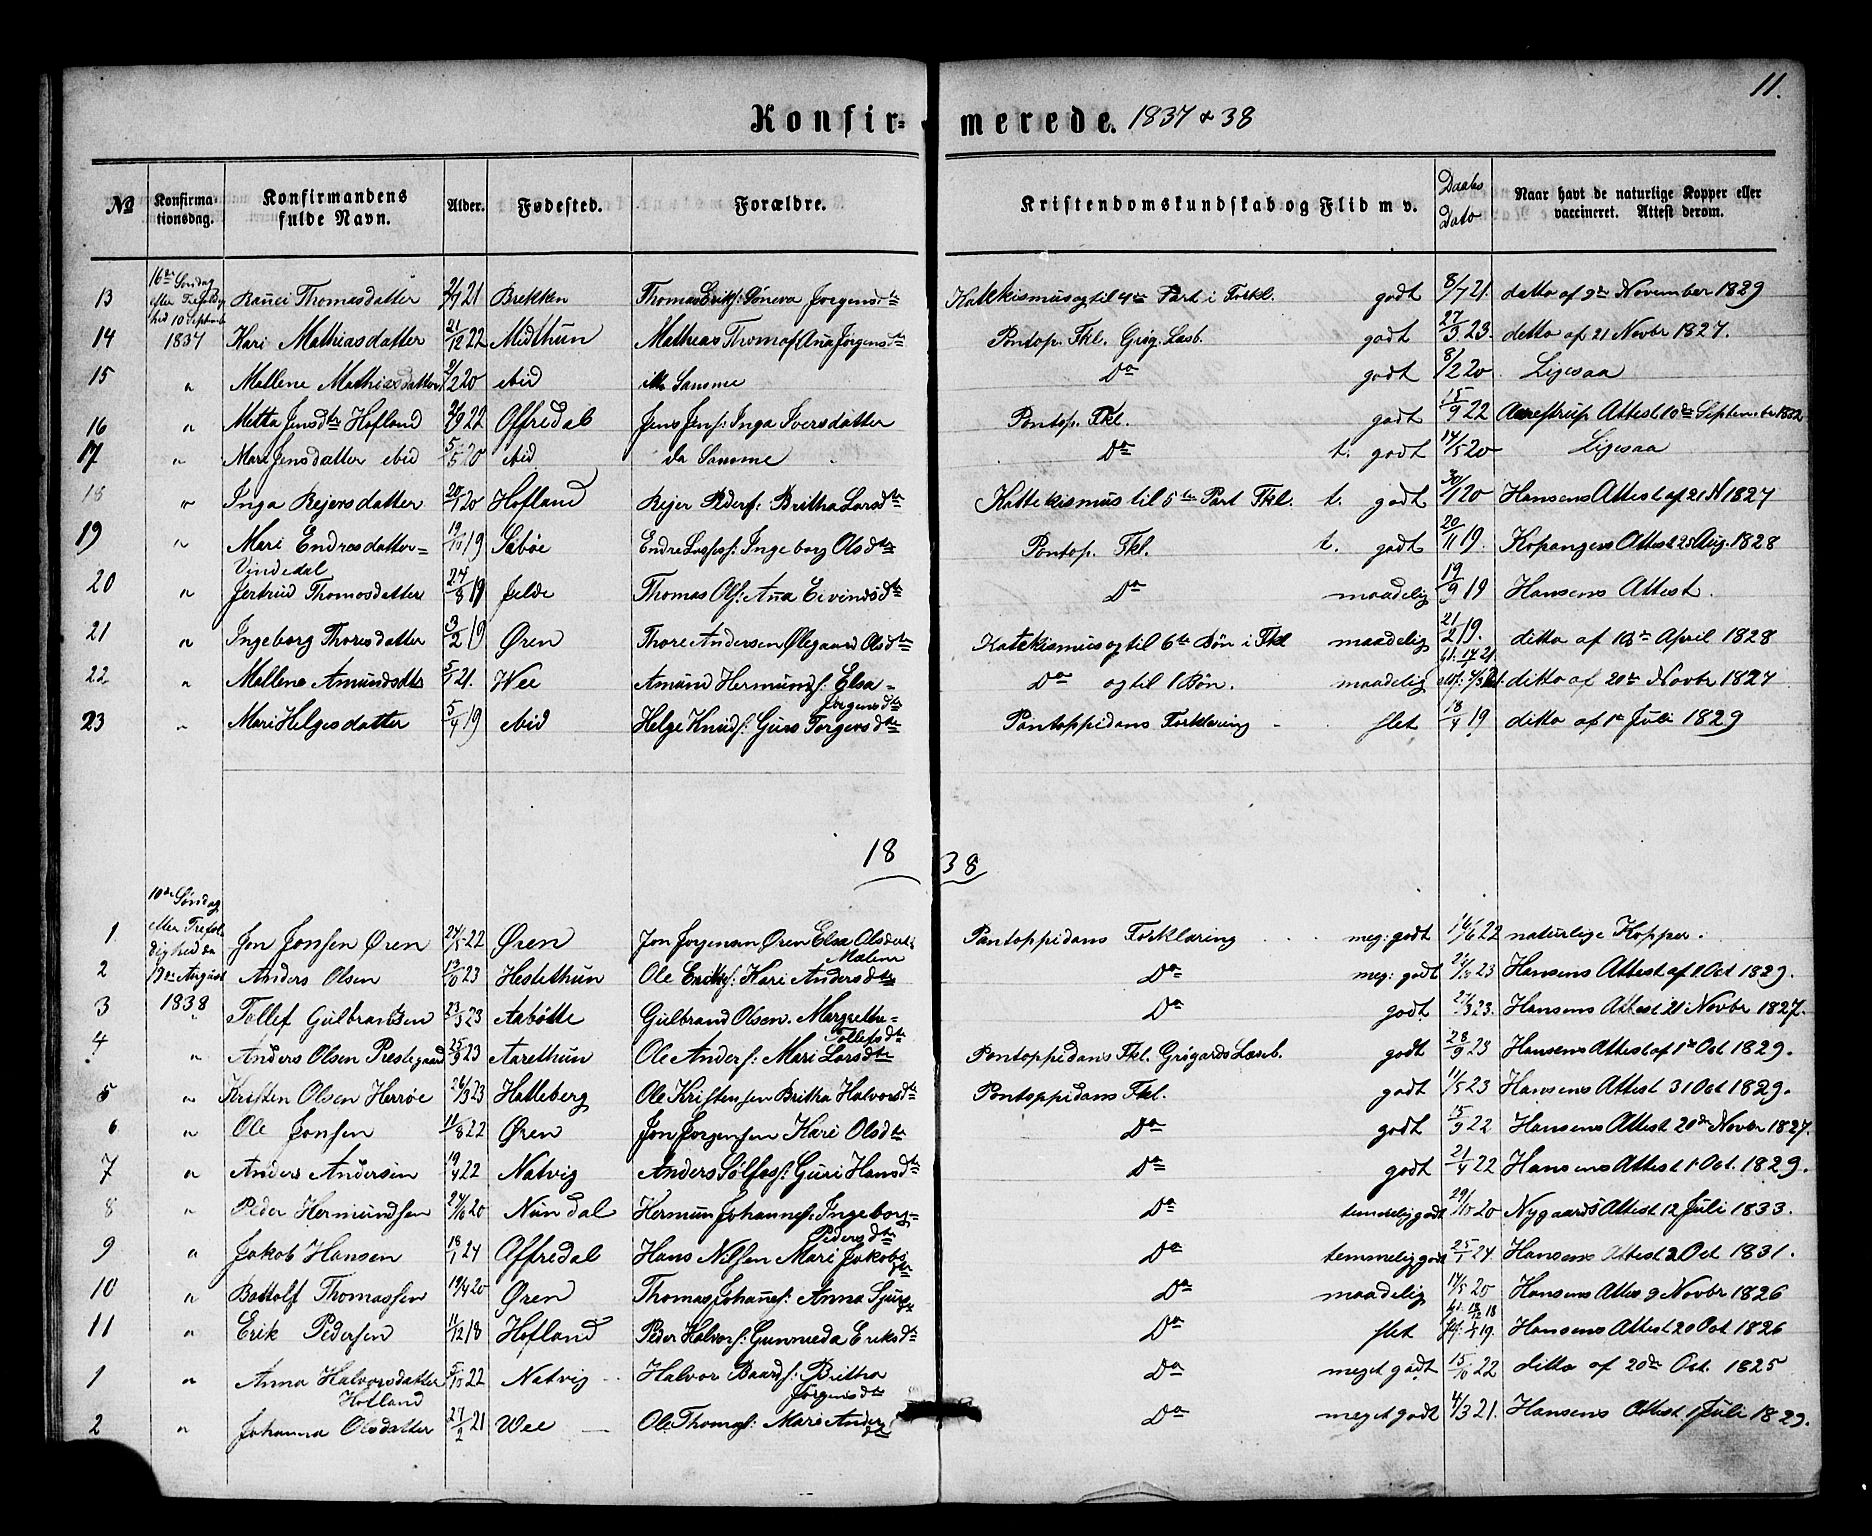 11.
Konfirmerede. 1837 & 38
№ Konfirmationsdag. Konfirmandens fulde Navn. Alder. Fødested. Forældre. Kristendomskundskab og Flid m v. Daabs Dato Naar havt de naturlige Kopper eller vaccineret. Attest derom.
16de Søndag efter Trefoldighed 10 Septemb 1837
13 Thomasdatter 21 Brekken Thomas Eriks: Jørgensdtr Katekismus og til 4de Part i Forkl. godt 8/7 21. datto af 9de November 1829
14 Kari Mathiasdatter 21/12 22 Midthun Mathias Thomas: Ana Jørgensdtr Pontop. Fkl. Grig. Læsb. godt 27/3 23. ditto af 21 Novbr 1827.
15 " Mallene Mathiasdatter 20 ibid Samme Do godt 8/2 20. Ligesaa
16 " Metta Jensdtr Hofland 22 Offredal Jens Jens: Inga Iversdatter Pontop. Fkl. godt 15/9 22 Attest 10de September
17 " Mari Jensdatter ibid 5/5 20 ibid da Samme Do t. godt 14/5 20 Ligesaa
18 " Inga Rejersdatter 20/1 20 Hofland Rejer Peders: Britha Larsdtr Kattekismus til 5te Part Fkl. t. godt 30/1 20 Hansens Attest af 21 N 1827
19 " Mari Endresdatter= Vindedal 19/10 19 Sæbøe Endre Ingeborg Olsdtr Pontop. Fkl. t. godt 20/11 19. Kopangers Attest 25 Aug. 1828
20 " Jertrud Thomasdatter 24/8 19 Jelde Thomas Ols: Ana Eivindsdtr Do maadelig 19/9 19 Hansens Attest.
21 " Ingeborg Thoresdatter 3/2 19 Øren Thore Andersen Ølegaard Olsdtr Katekismus og til 6te Bøn i Fkl maadelig 21/2 19. ditto af 18de April 1828
22 " Mallene Amundsdtr 21. Wee Amund Hermunds: Elsa= Jørgensdtr Do og til 1 Bøn. maadelig ditto af 20de Novbr 1827
23 " Mari Helgesdatter 5/4 19 ibid Helge Knuds: Guro Torgersdtr Pontoppidans Forklaring slet 18/4 19 ditto af 1te Juli 1829
1838
10de Søndag efter Trefoldighed da 19de August 1838
1 Jon Jonsen Øren 24/5 22 Øren Jon Jørgensen Øren Elsa Olsdatt. Pontoppidans Forklaring meg: godt 14/6 22 naturlige Kopper.
2 Anders Olsen 13/10 23 Hestethun Ole Eriks: Kari Malene Andersdtr Do meg: godt 23 Hansens Attest af 1 Oct 1829.
3 " Tollef Gulbrandsen 23/3 23 Aabøtte Gulbrand Olsen. Margrethe= Tollefsdtr Do godt 27/3 23. Hansens Attest 21 Novbr 1827.
4 " Anders Olsen Prestegaard 25/9 23 Aarethun Ole Anders: Mari Larsdtr Pontoppidans Fkl. Grigards Læseb. godt 28/9 23 Hansens Attest af 1te Oct 1829.
5 " Kristen Olsen Herrøe 26/3 23 Hatleberg Ole Kristensen Britha Halvorsdtr Pontoppidans Fkl. godt 11/5 23 Hansens Attest 31 Oct 1829.
6 " Ole Jonsen 11/8 22 Øren Jon Jørgensen Kari Olsdtr Do godt 15/9 22 Hansens Attest 20de Novbr 1827.
7 " Anders Andersen 19/4 22 Natvig Anders Sølfes: Guri Hansdtr Do godt 21/4 22 Hansens Attest 1 Oct. 1829.
8 " Peder Hermundsen 24/10 20 Nundal Hermun Johannes: Ingeborg= Pedersdtr Do temmelig godt 29/10 20 Nygaards Attest 12 Juli 1833.
9 " Jakob Hansen 18/1 24 Offredal Hans Nilsen Mari Jakobsdtr Do temmelig godt 25/1 24. Hansens Attest 2 Oct 1831.
10 " Bottolf Thomassen 19/4 20 Øren Thomas Johanes: Anna Do maadelig 14/5 20 Hansens Attes 9 Novbr 1826
11 " Erik Pedersen 11/12 18 Hofland Peder Halvors: Gunnilda Eriksdtr Do slet Hansens Attest 20 Oct 1826
1 " Anna Halvorsdatter Hofland 5/10 22 Natvig Halvor Baards: Britha Jørgensdtr Do meget godt 15/10 22 ditto af 20de Oct. 1825
2 " Johanna Olsdatter 27/2 21 Wee Ole Thomas: Mari Andersdtr Do meget godt 4/3 21. Hansens Attest 1 Juli 1829.